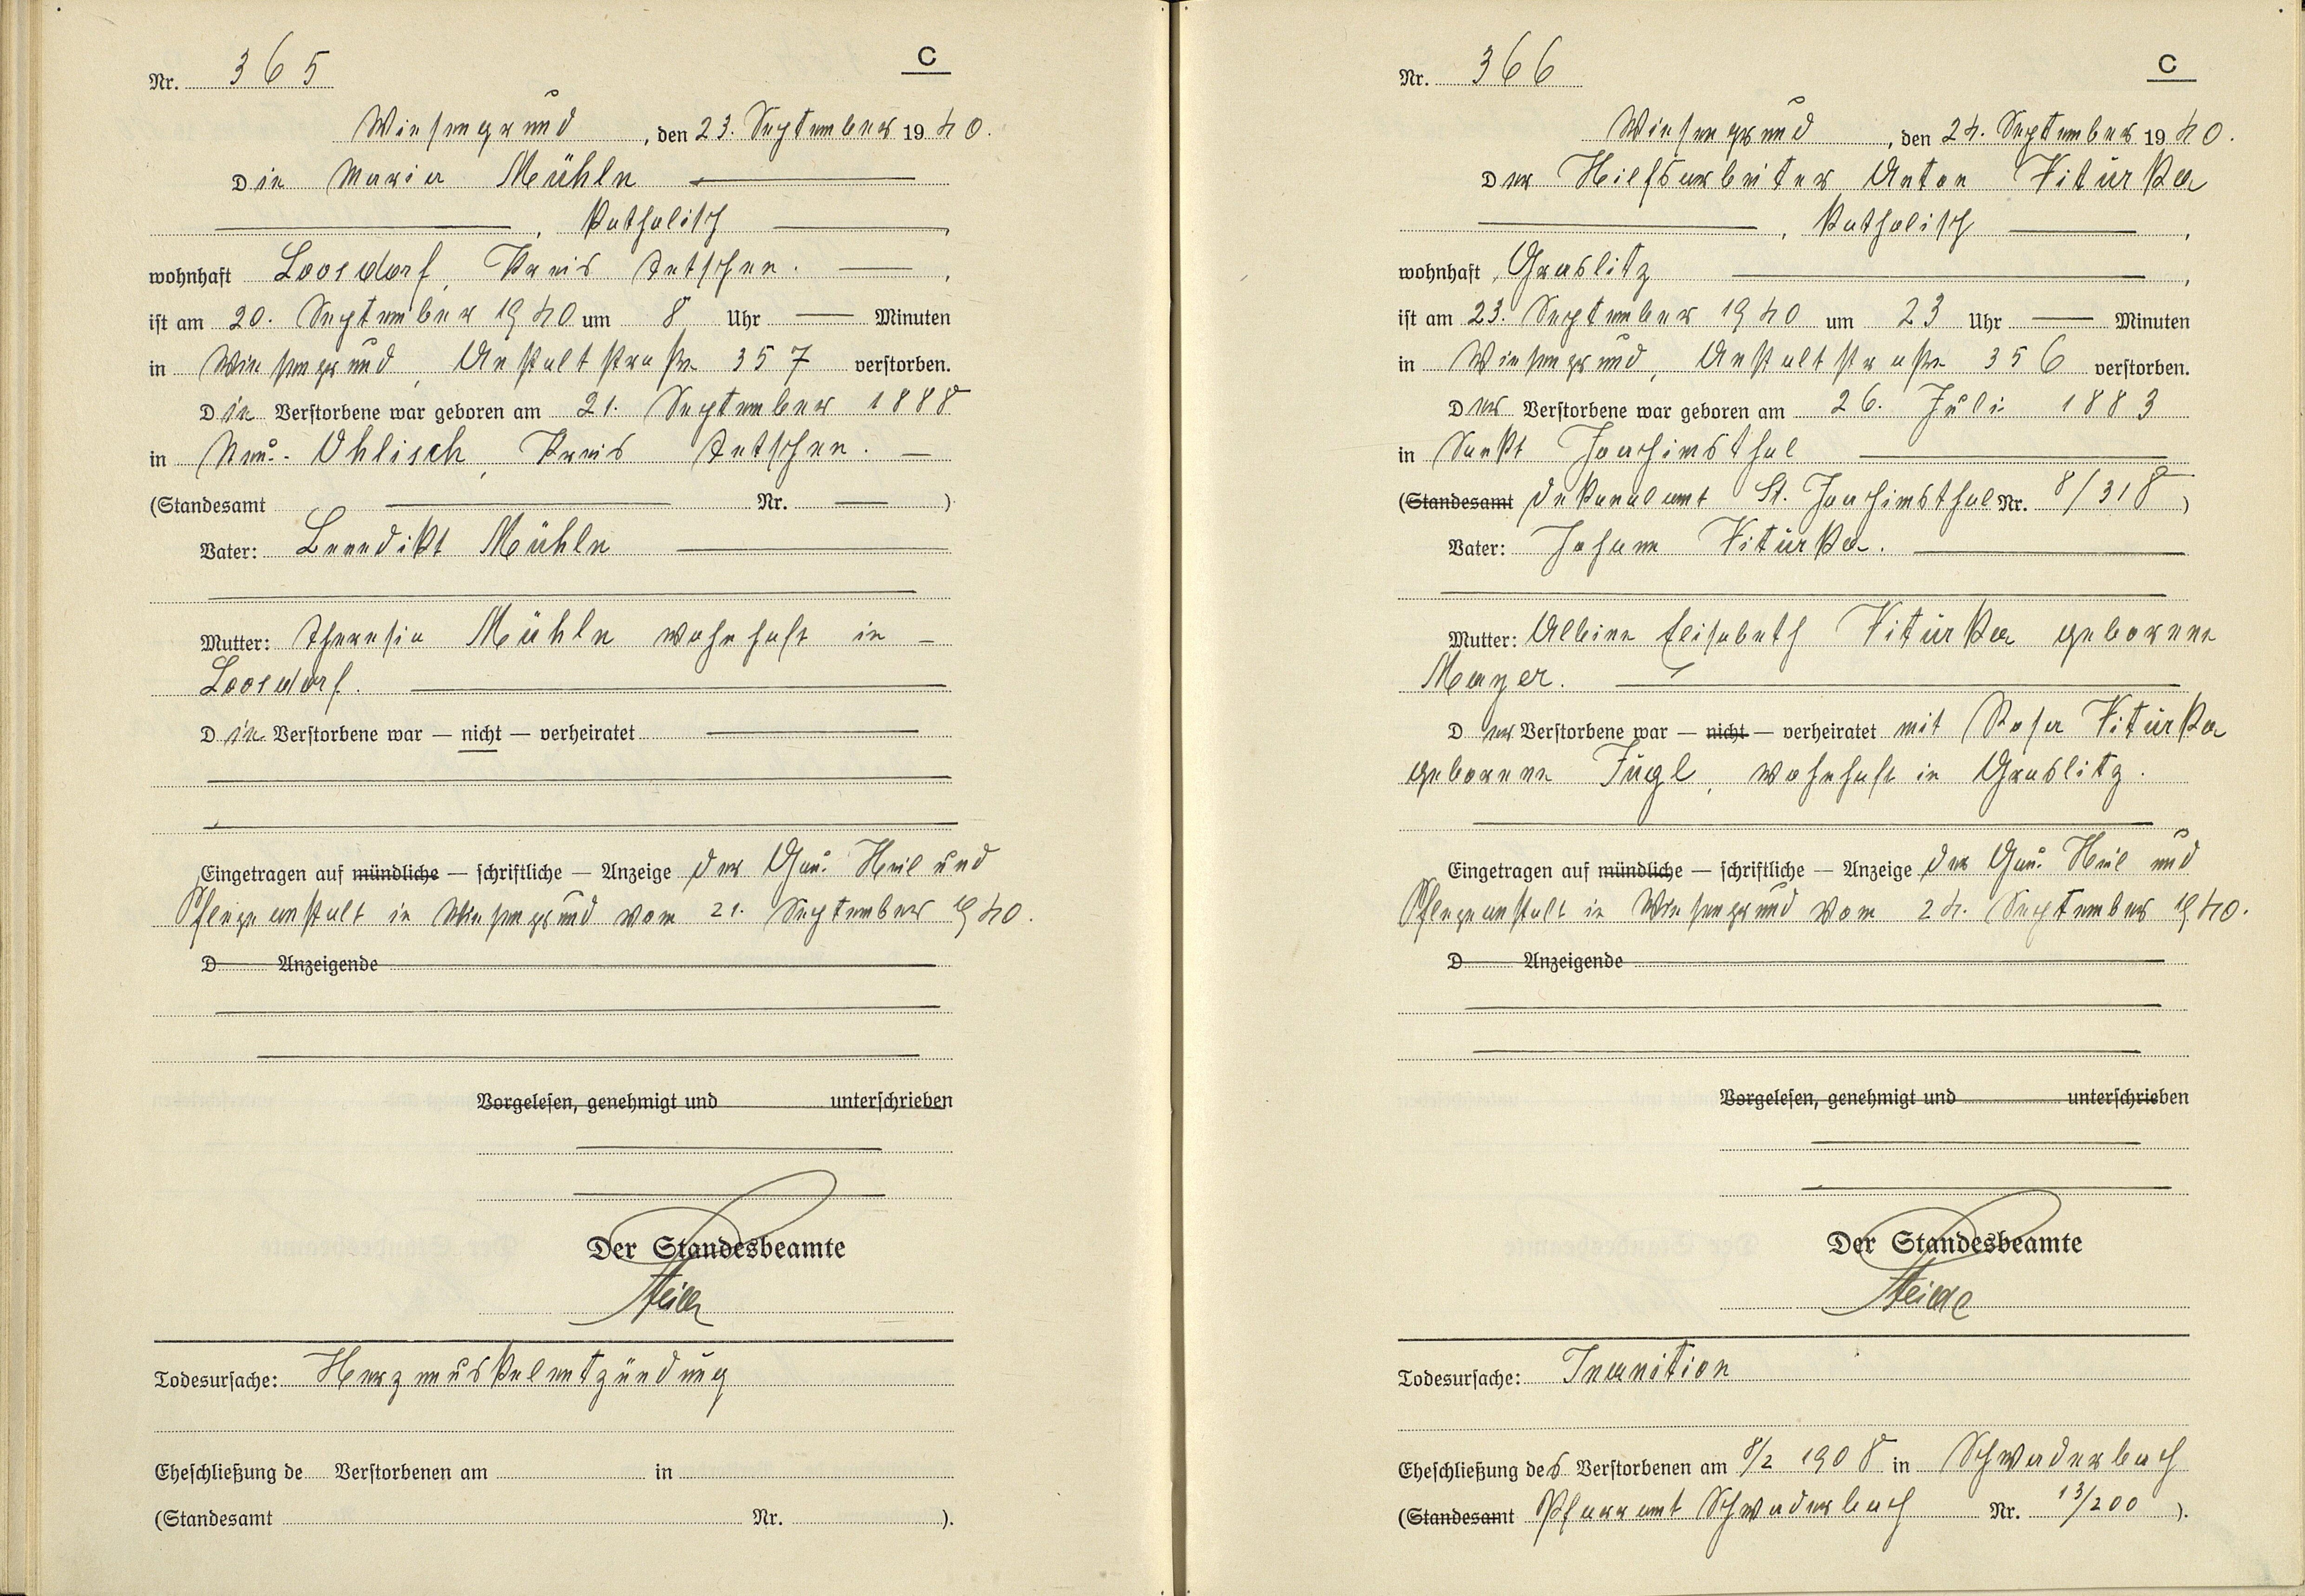 C
Nr. 365
Wiesengrund, den 23. September 1940.
Die Maria Mühle
, katholisch ,
wohnhaft Loosdorf, Kreis Tetschen. ,
ist am 20. September 1940 um 8 Uhr Minuten
in Wiesengrund, Anstaltstraße 357 verstorben.
Die Verstorbene war geboren am 21. September 1888
in Neu-Ohlisch, Kreis Tetschen.
(Standesamt Nr. )
Vater: Benedikt Mühle
Mutter: Theresia Mühle wohnhaft in
Loosdorf.
Die Verstorbene war — nicht — verheiratet
Eingetragen auf mündliche — schriftliche — Anzeige der Gau-Heil und
Pflegeanstalt in Wiesengrund vom 21. September 1940.
D Anzeigende
Vorgelesen, genehmigt und unterschrieben
Der Standesbeamte
Todesursache: Herzmuskelentzündung
Eheschließung de Verstorbenen am in
(Standesamt Nr. ).
C
Nr. 366
Wiesengrund, den 24. September 1940.
Der Hilfsarbeiter Anton Viturka
, katholisch ,
wohnhaft Graslitz ,
ist am 23. September 1940 um 23 Uhr Minuten
in Wiesengrund, Anstaltstraße 356 verstorben.
Der Verstorbene war geboren am 26. Juli 1883
in Sankt Joachimsthal
(Standesamt Dekanalamt St. Joachimsthal Nr. 8/318)
Vater: Johann Viturka.
Mutter: Albine Elisabeth Viturka geborene
Mayer.
Der Verstorbene war — nicht — verheiratet mit Rosa Viturka
geborene Fügl, wohnhaft in Graslitz.
Eingetragen auf mündliche — schriftliche — Anzeige der Gau-Heil und
Pflegeanstalt in Wiesengrund vom 24. September 1940.
D Anzeigende
Vorgelesen, genehmigt und unterschrieben
Der Standesbeamte
Todesursache: Inanition
Eheschließung des Verstorbenen am 8/2 1908 in Schwaderbach
(Standesamt Pfarramt Schwaderbach Nr. 13/200).